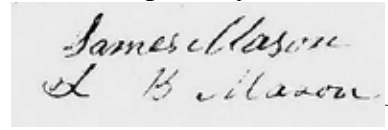 James Mason
L B Mason